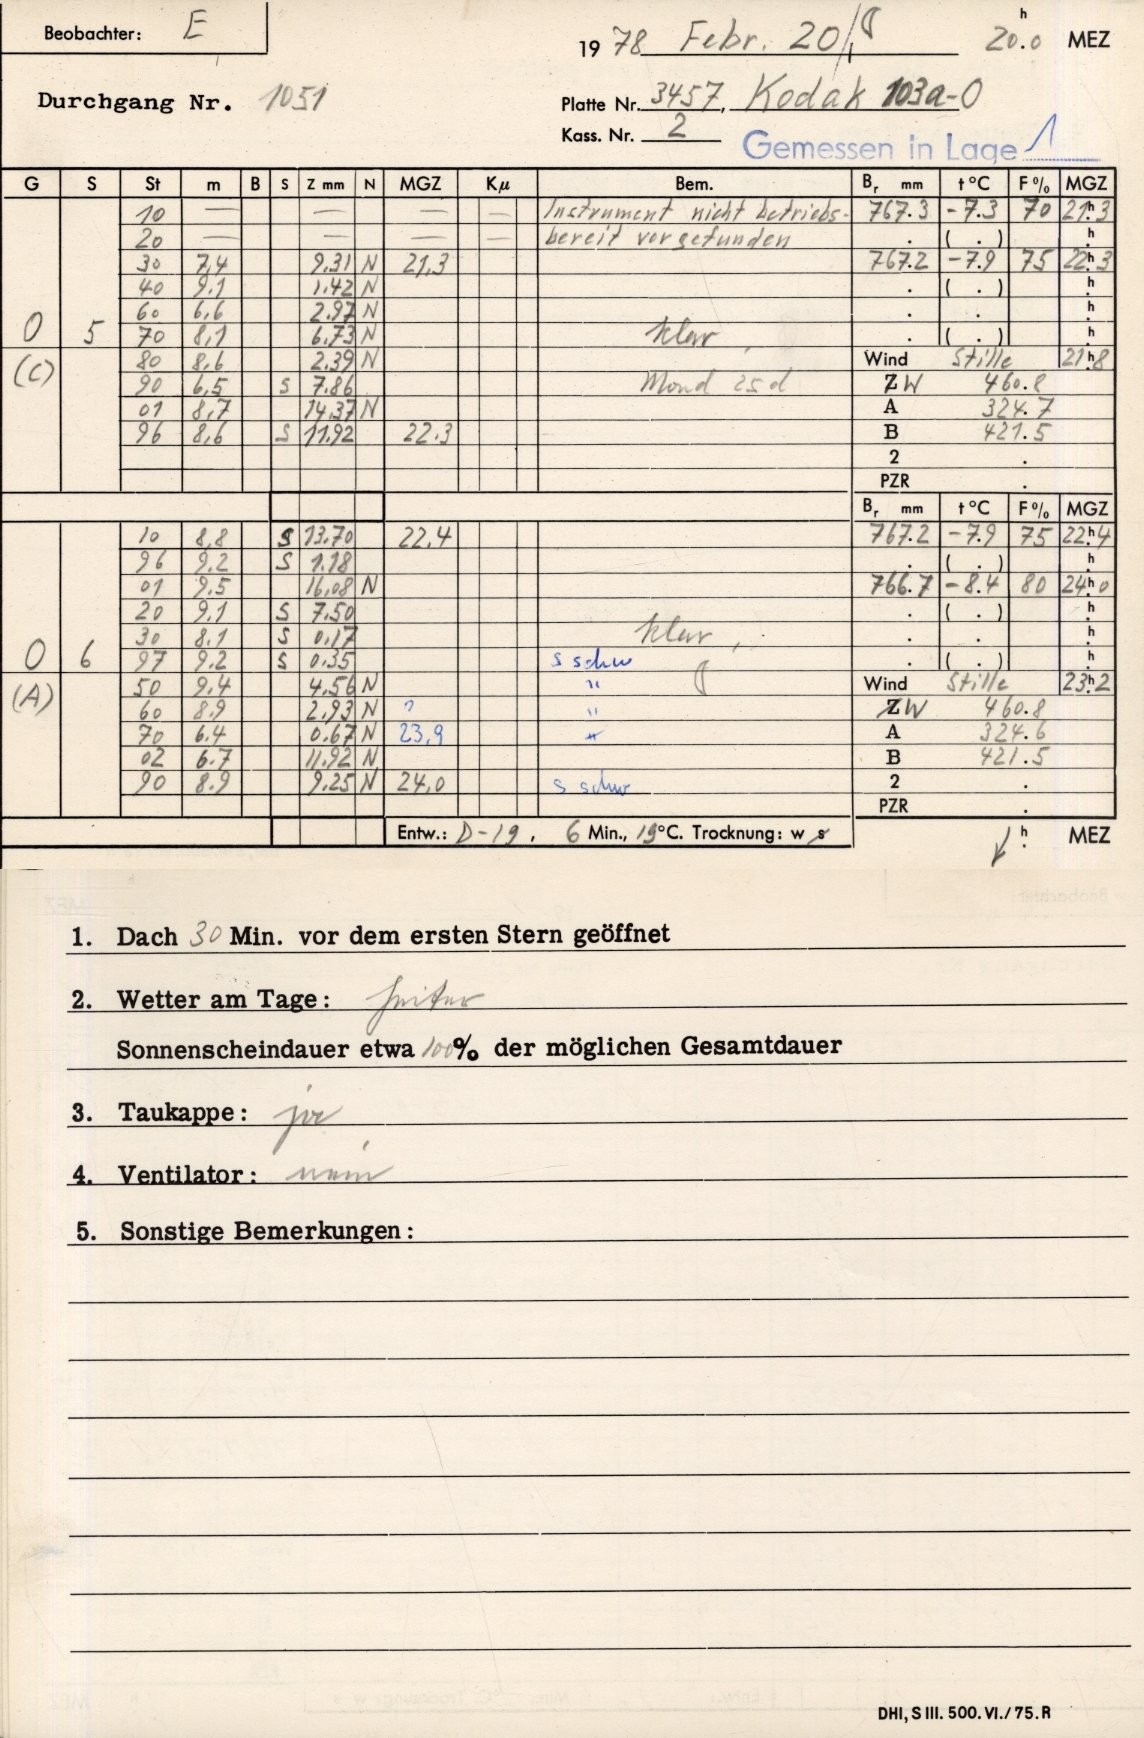 Beobachter: E
1978 Febr. 20/ 20.0 h MEZ
Durchgang Nr. 1051
Platte Nr. 3457, Kodak 103a-O
Kass. Nr. 2
Gemessen in Lage 1
G S St m B S Z mm N MGZ Kμ Bem. Br mm t °C F % MGZ
10 — — — — Instrument nicht betriebs- 767.3 -7.3 70 21h.3
20 — — — — bereit vorgefunden . ( . ) h
30 7,4 9.31 N 21,3 767.2 -7.9 75 22h.3
40 9.1 1.42 N . ( . ) h
60 6,6 2.97 N . . h
0 5 70 8,1 6.73 N klar . ( . ) h
(C) 80 8,6 2.39 N Wind Stille 21h.8
90 6,5 S 7.86 Mond 25d ZW 460.8
01 8,7 14,37 N A 324.7
96 8,6 S 11,92 22.3 B 421.5
2 .
PZR .
Br mm t °C F % MGZ
10 8,8 S 13.70 22,4 767.2 -7.9 75 22h.4
96 9.2 S 1.18 . ( . ) h
01 9.5 16,08 N 766.7 -8.4 80 24h.0
20 9.1 S 7.50 . ( . ) h
30 8.1 S 0.17 klar, . . h
0 6 97 9.2 S 0.35 s schw . ( . ) h
(A) 50 9.4 4.56 N " Wind Stille 23h.2
60 8.9 2.93 N ? " ZW 460.8
70 6.4 0.67 N 23,9 " A 324.6
02 6.7 11.92 N B 421.5
90 8.9 9.25 N 24,0 s schw 2 .
PZR .
Entw.: D-19, 6 Min., 19°C. Trocknung: w s h MEZ
1. Dach 30 Min. vor dem ersten Stern geöffnet
2. Wetter am Tage: heiter
Sonnenscheindauer etwa 100% der möglichen Gesamtdauer
3. Taukappe: ja
4. Ventilator: nein
5. Sonstige Bemerkungen:
DHI, S III. 500. VI./ 75. R